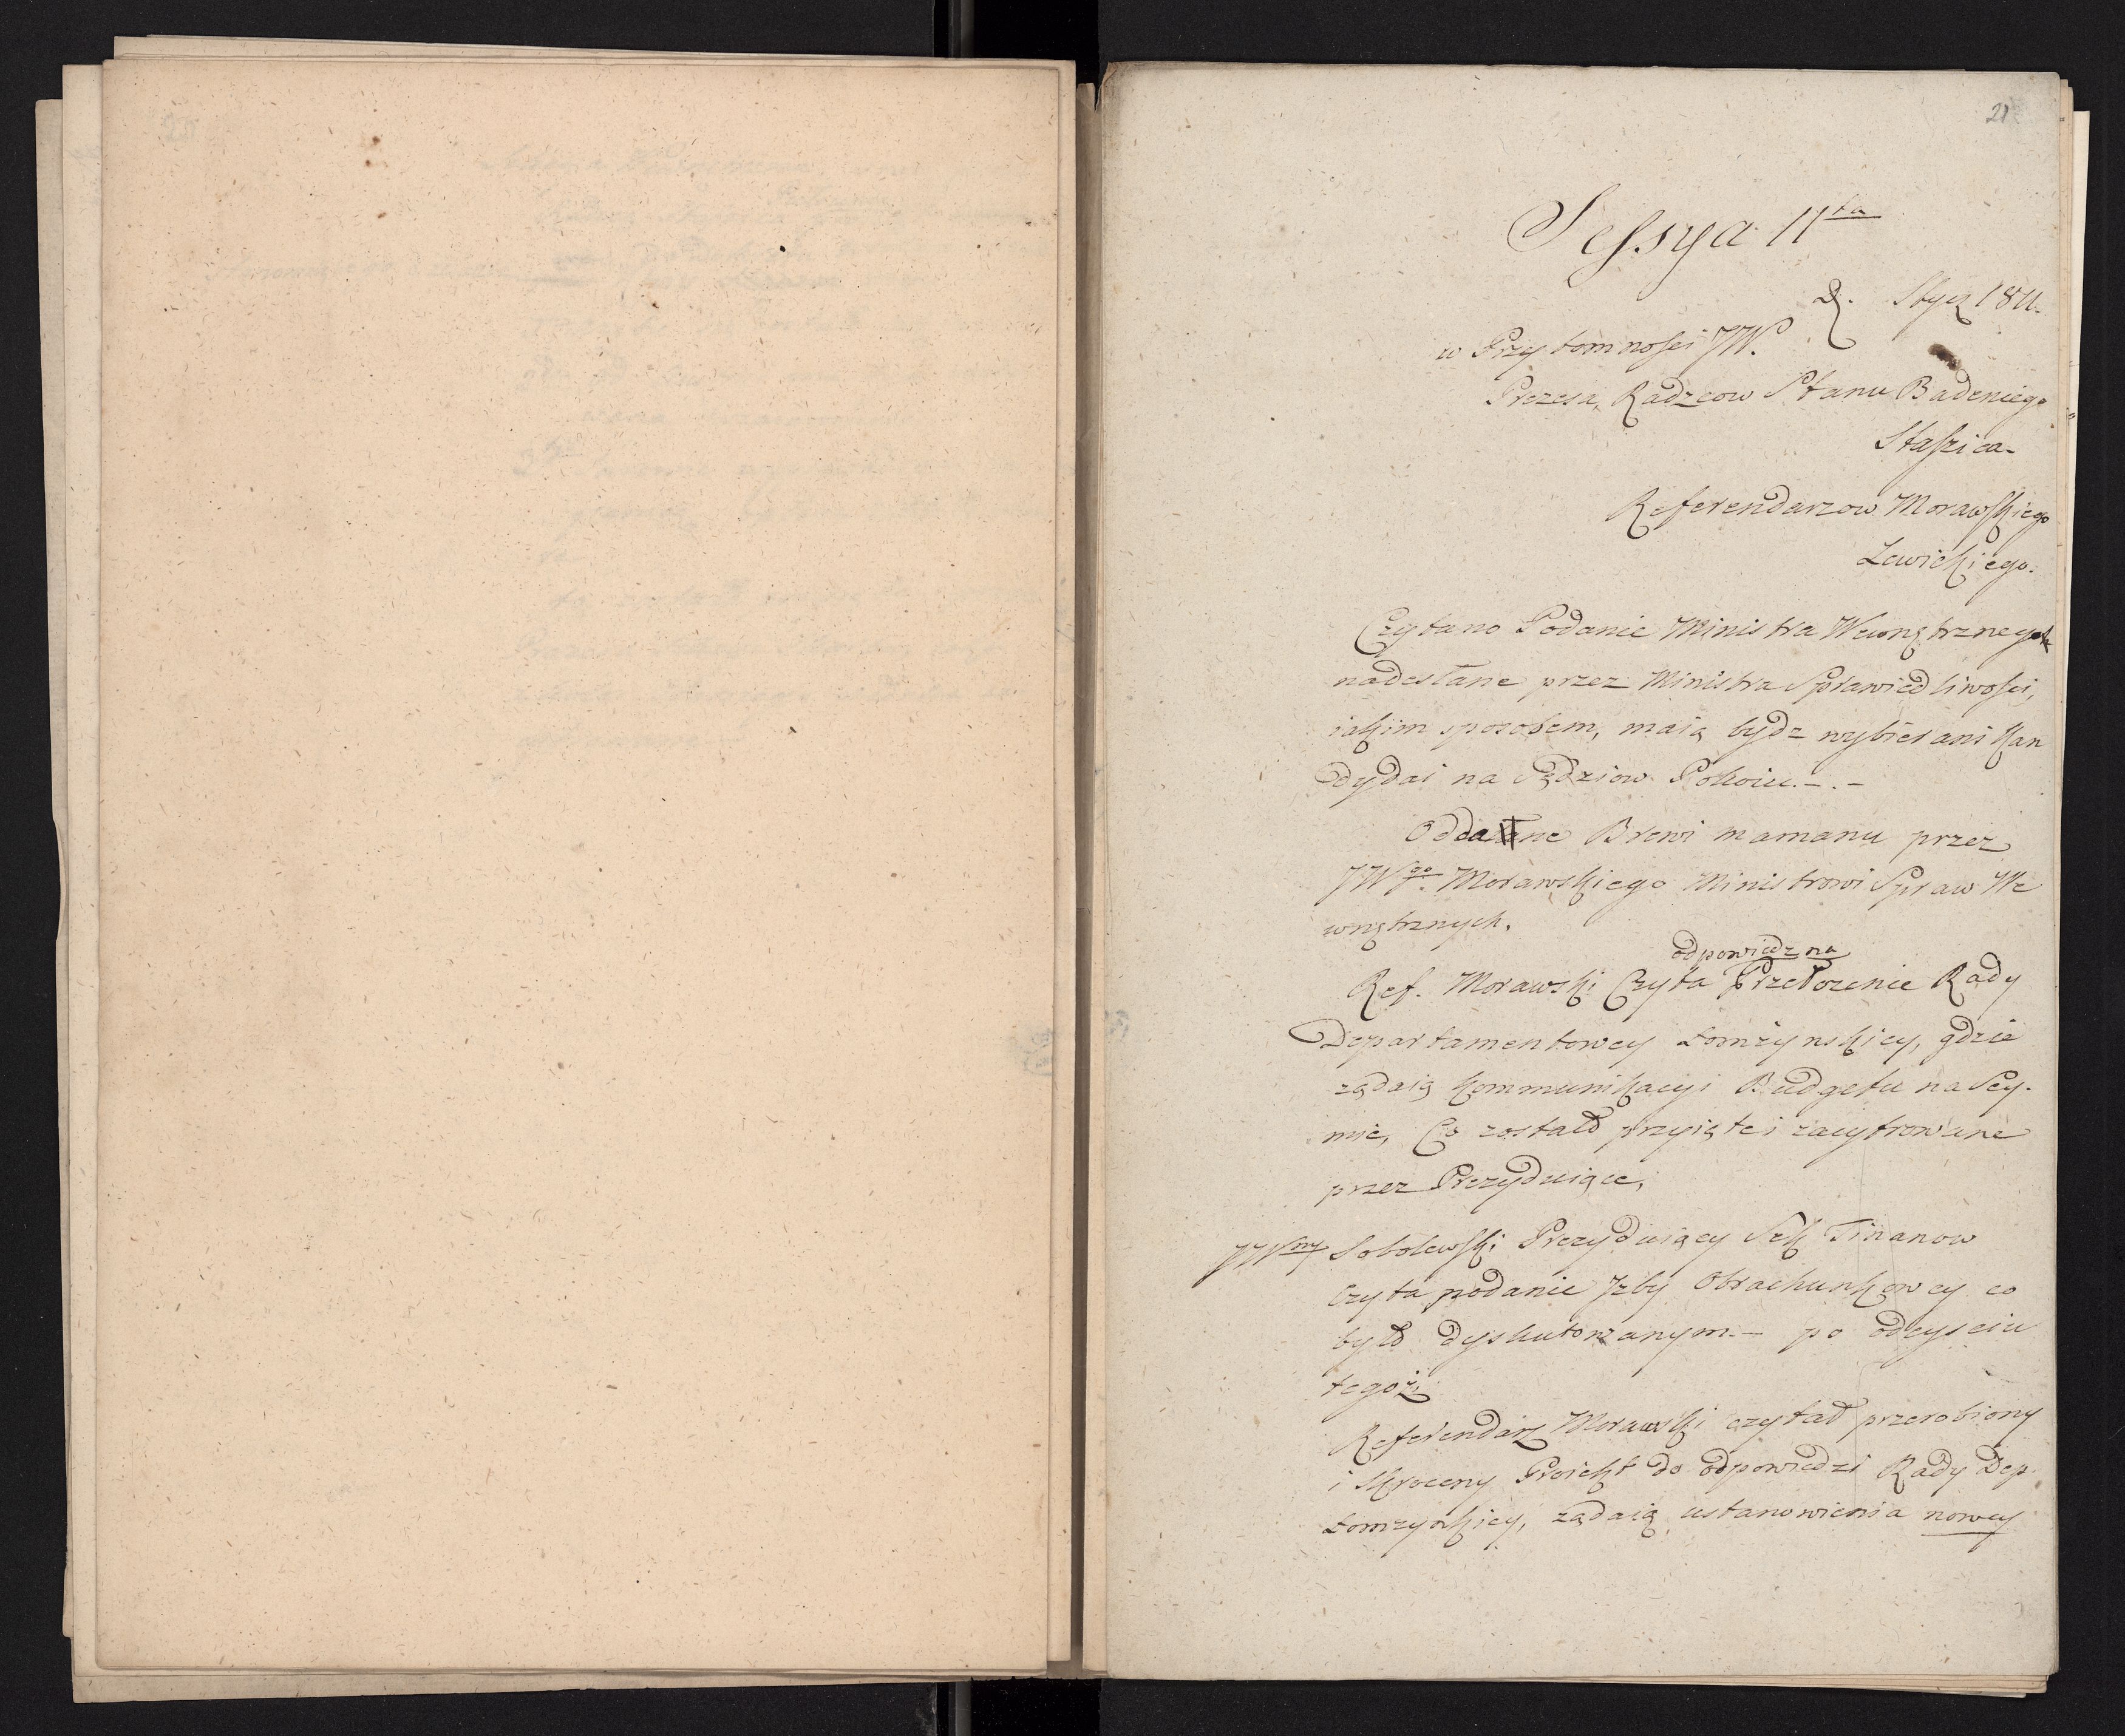 21
Sessya 11ta
D. Stycz 1811.
w Przytomnosci JW.
Prezesa, Radzcow Stanu Badeniego
Staszica-
Referendarzow Morawskiego
Lewickiego.
Czytano Podanie Ministra Wewnętrznego
nadesłane przez Ministra Sprawiedliwosci,
iakim sposobem, maią bydz wybierani kan
dydai na Sędziow Pokoiu. - . -
Oddane Brewi mamanu przez
JWgo. Morawskiego Ministrowi Spraw We
wnętrznych.
odpowiedz na
Ref. Morawski Czyta Przełozenie Rady
Departamentowey Łomżynskiey, gdzie
ządaią kommunikacyi Budgetu na Sey-
mie, Co zostało przyięte i zacyfrowane
przez Prezyduiące,
JWny Sobolewski Prezyduiący Sek Finanow
czyta podanie Izby Obrachunkowey co
było dyskutowanym. - po odeysciu
tegoż,
Referendarz Morawski czytał przerobiony
i skrocony Proiekt do odpowiedzi Rady Dep.
Łomzynskiey, ządaią ustanowienia nowey